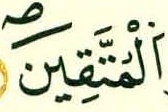 اَلْمُتَّقِينَ